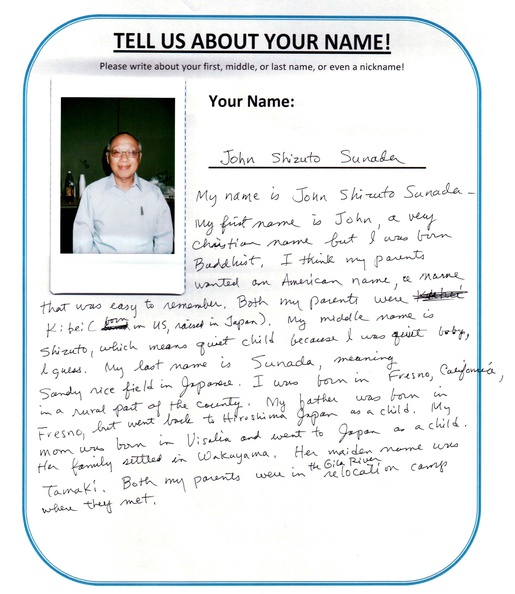 TELL US ABOUT YOUR NAME!
Please write about your first, middle, or last name, or even a nickname!
Your Name:
John Shizuto Sunada
My name is John Shizuto Sunada -
My first name is John, a very
Christian name but I was born
Buddhist. I think my parents
wanted an American name, a name
that was easy to remember. Both my parents were
Kibei (born in US, raised in Japan). My middle name is
Shizuto, which means quiet child because I was quiet baby,
I guess. My last name is Sunada, meaning
Sandy rice field in Japanese. I was born in Fresno, California,
in a rural part of the county. My father was born in
Fresno, but went back to Hiroshima Japan as a child. My
mom was born in Visalia and went to Japan as a child.
Her family settled in Wakayama. Her maiden name was
Tamaki. Both my parents were in the Gila River relocation camp
where they met.